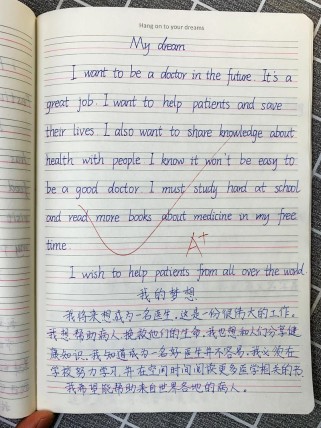 Hang on to your dreams
My dream
I want to be a doctor in the future. It's a
great job. I want to help patients and save
their lives. I also want to share knowledge about
health with people. I know it won't be easy to
be a good doctor. I must study hard at school
and read more books about medicine in my free
time.
A+
I wish to help patients from all over the world.
我的梦想
我将来想成为一名医生。这是一份很伟大的工作。
我想帮助病人,挽救他们的生命。我也想和人们分享健
康知识。我知道成为一名好医生并不容易。我必须在
学校努力学习,并在空闲时间阅读更多医学相关的书
我希望能帮助来自世界各地的病人。